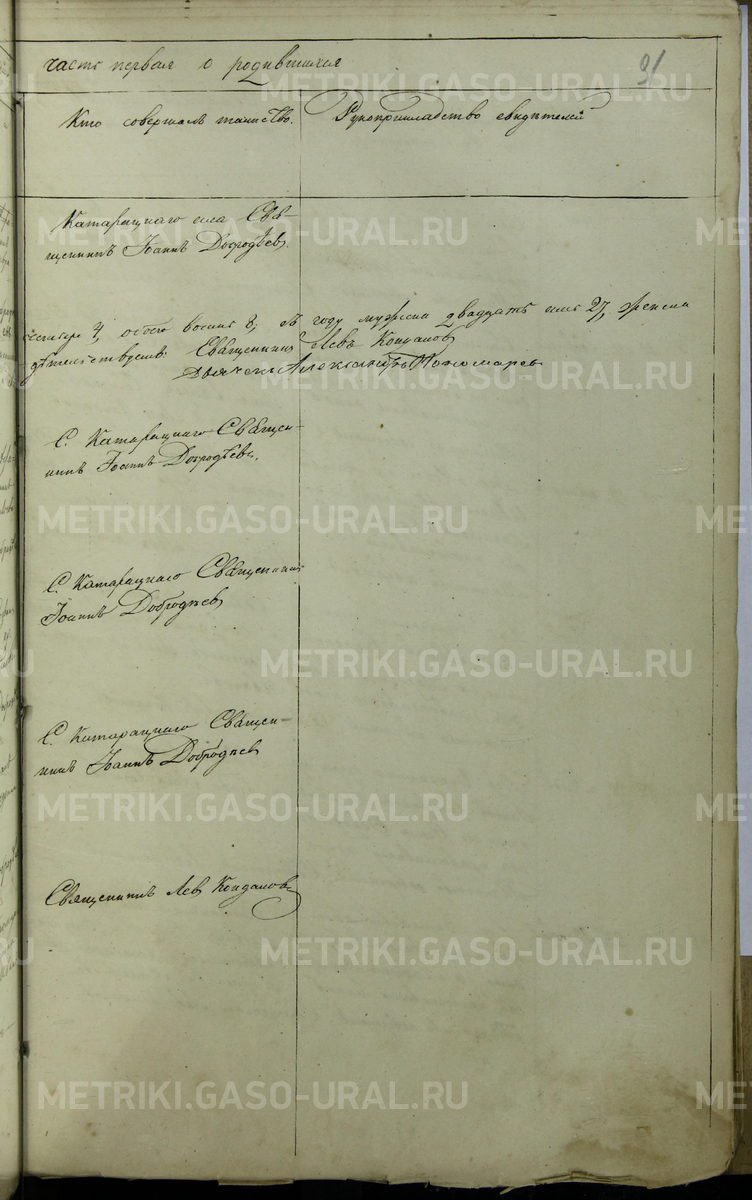 часть первая о родившихся
31
Кто совершалъ таинство.
Рукоприкладство свидѣтелей
Катарацкаго села Свя-
щенникъ Іоаннъ Добродѣевъ
4, обоего 8; въ году мужска двадцать 27, женска
Священникъ Левъ Кондаковъ
Дьячекъ Александръ Пономаревъ
С. Катарацкаго Священ-
никъ Іоаннъ Добродѣевъ.
С. Катарацкаго Священникъ
Іоаннъ Добродѣевъ
С. Катарацкаго Священ-
никъ Іоаннъ Добродѣевъ
Священникъ Левъ Кондаковъ
METRIKI.GASO-URAL.RU